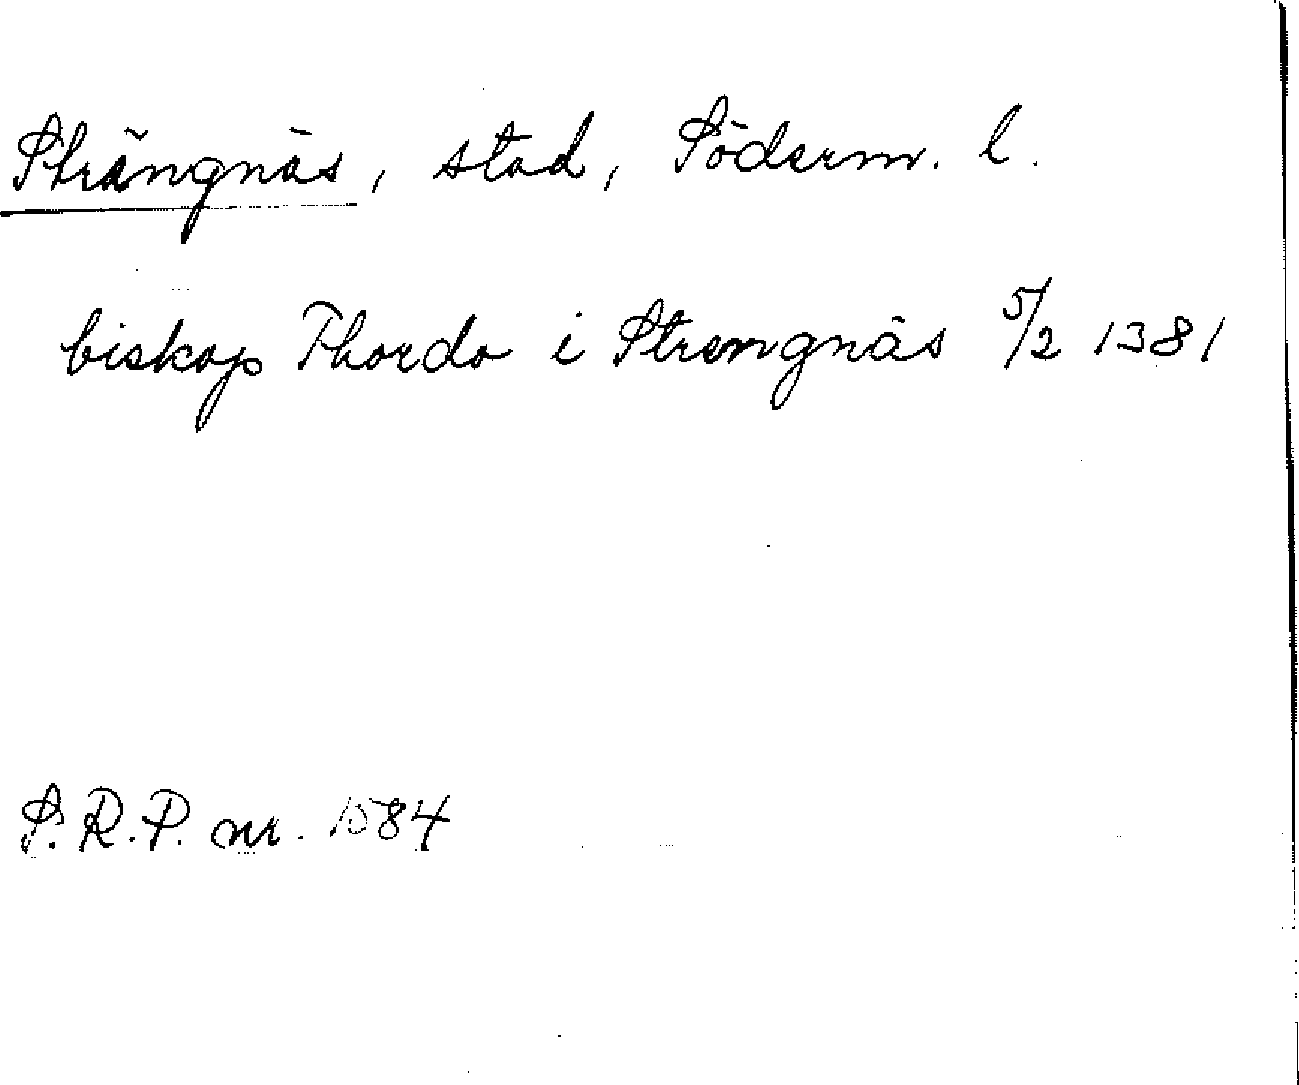 Strängnäs, stad, Söderm. l.
biskop Thordo i Strengnäs 5/2 1381
S.R.P. nr. 1584